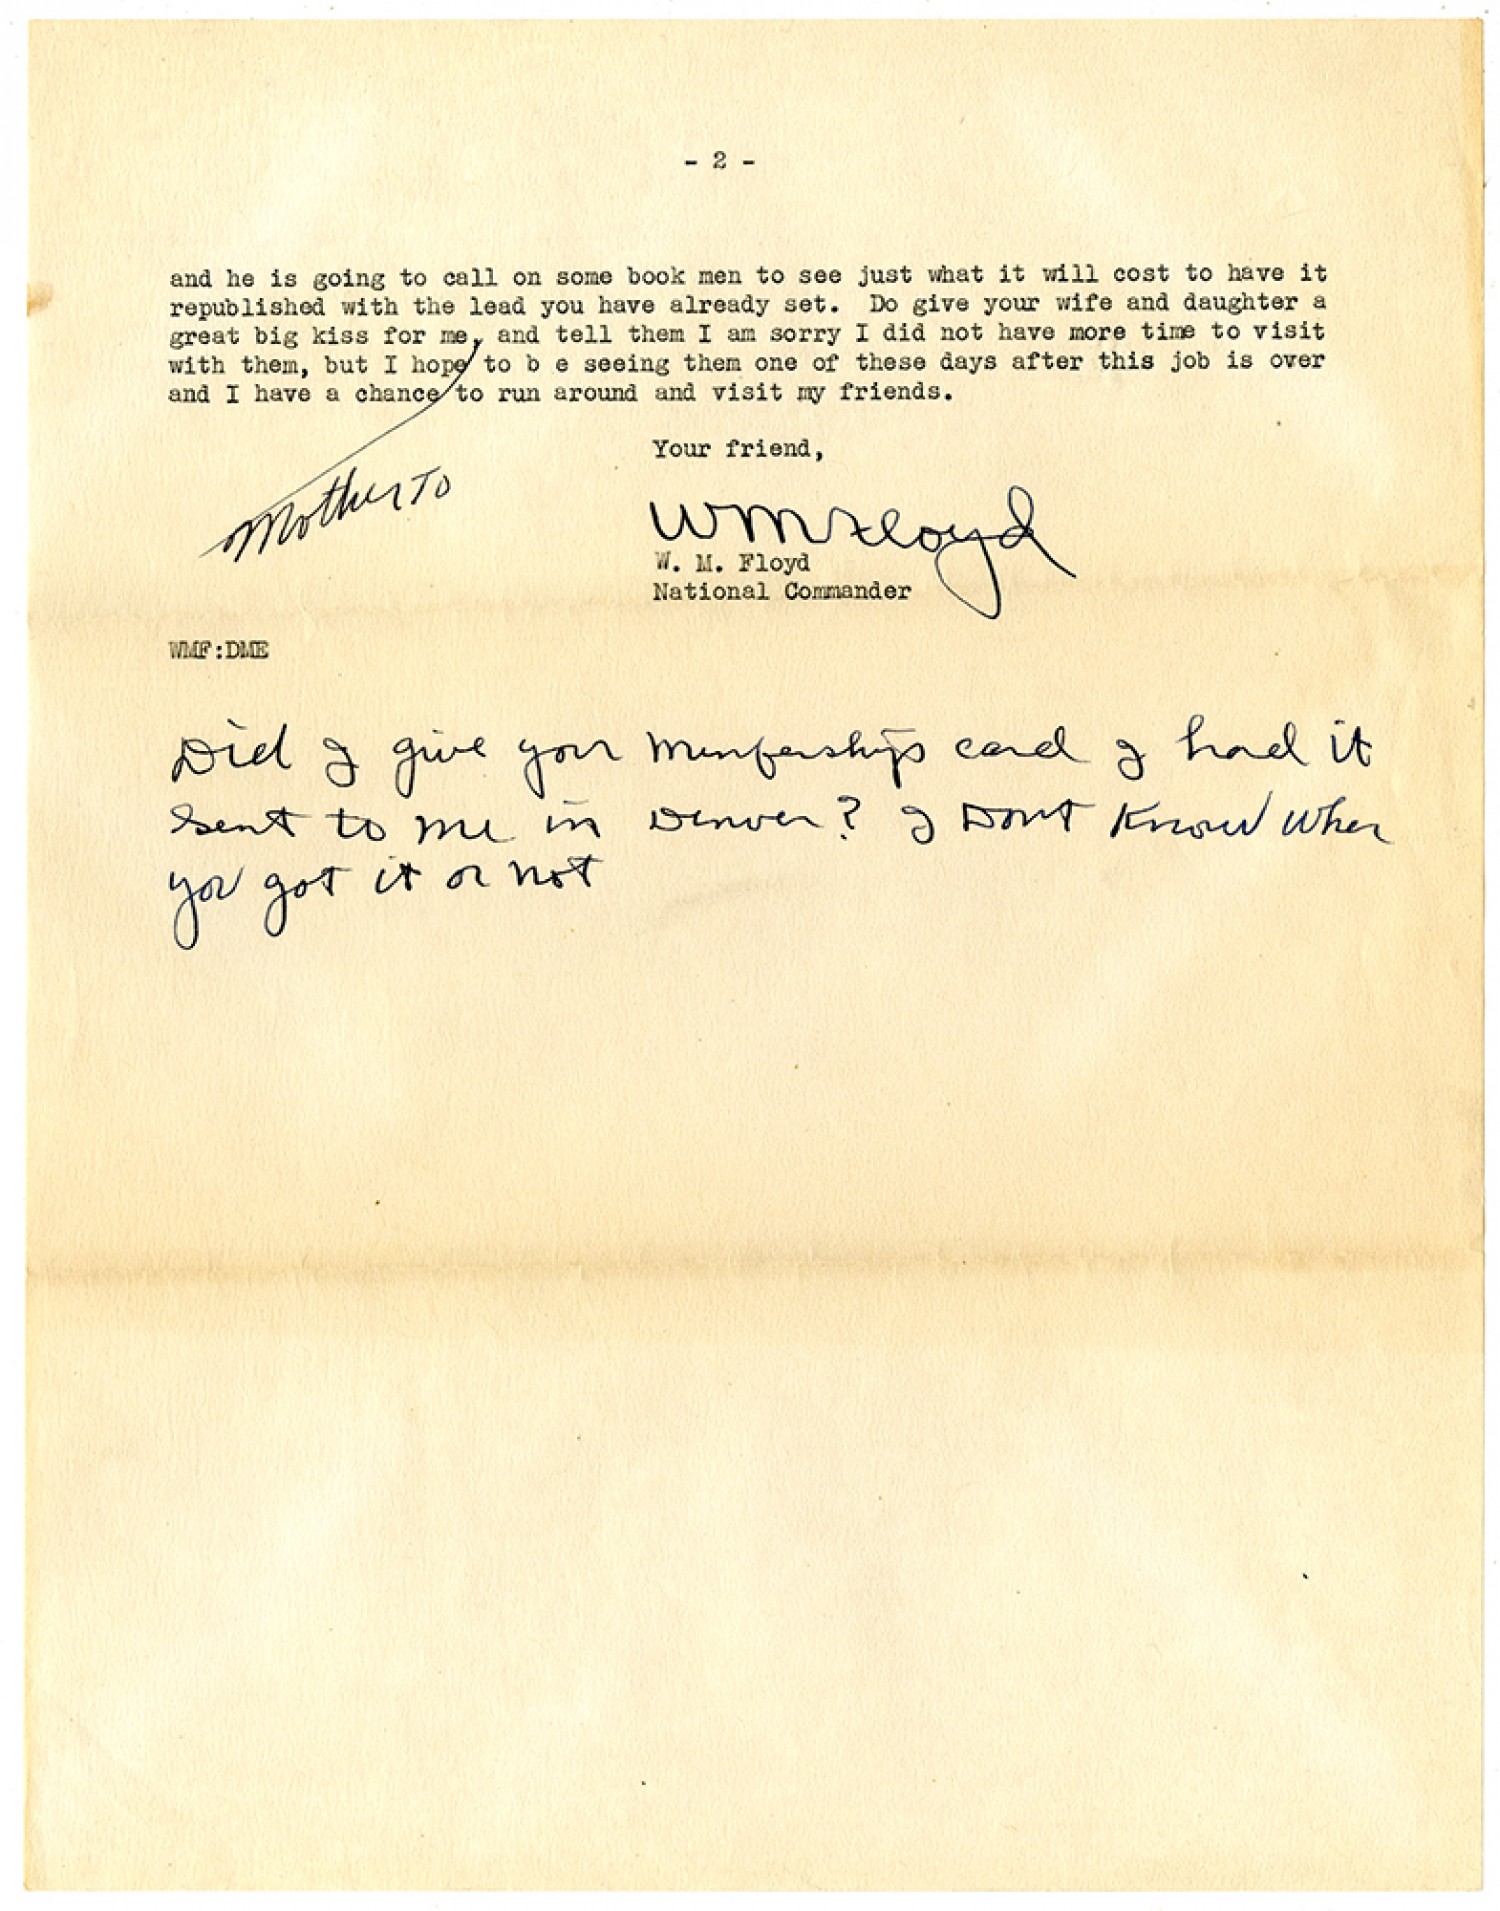 - 2 -
and he is going to call on some book men to see just what it will cost to have it
republished with the lead you have already set. Do give your wife and daughter a
great big kiss for me, and tell them I am sorry I did not have more time to visit
with them, but I hope to b e seeing them one of these days after this job is over
and I have a chance to run around and visit my friends.
Mother TO
Your friend,
WM Floyd
W. M. Floyd
National Commander
WMF:DME
Did I give your Memberships card I had it
sent to me in Denver? I Dont Know wher
you got it or not